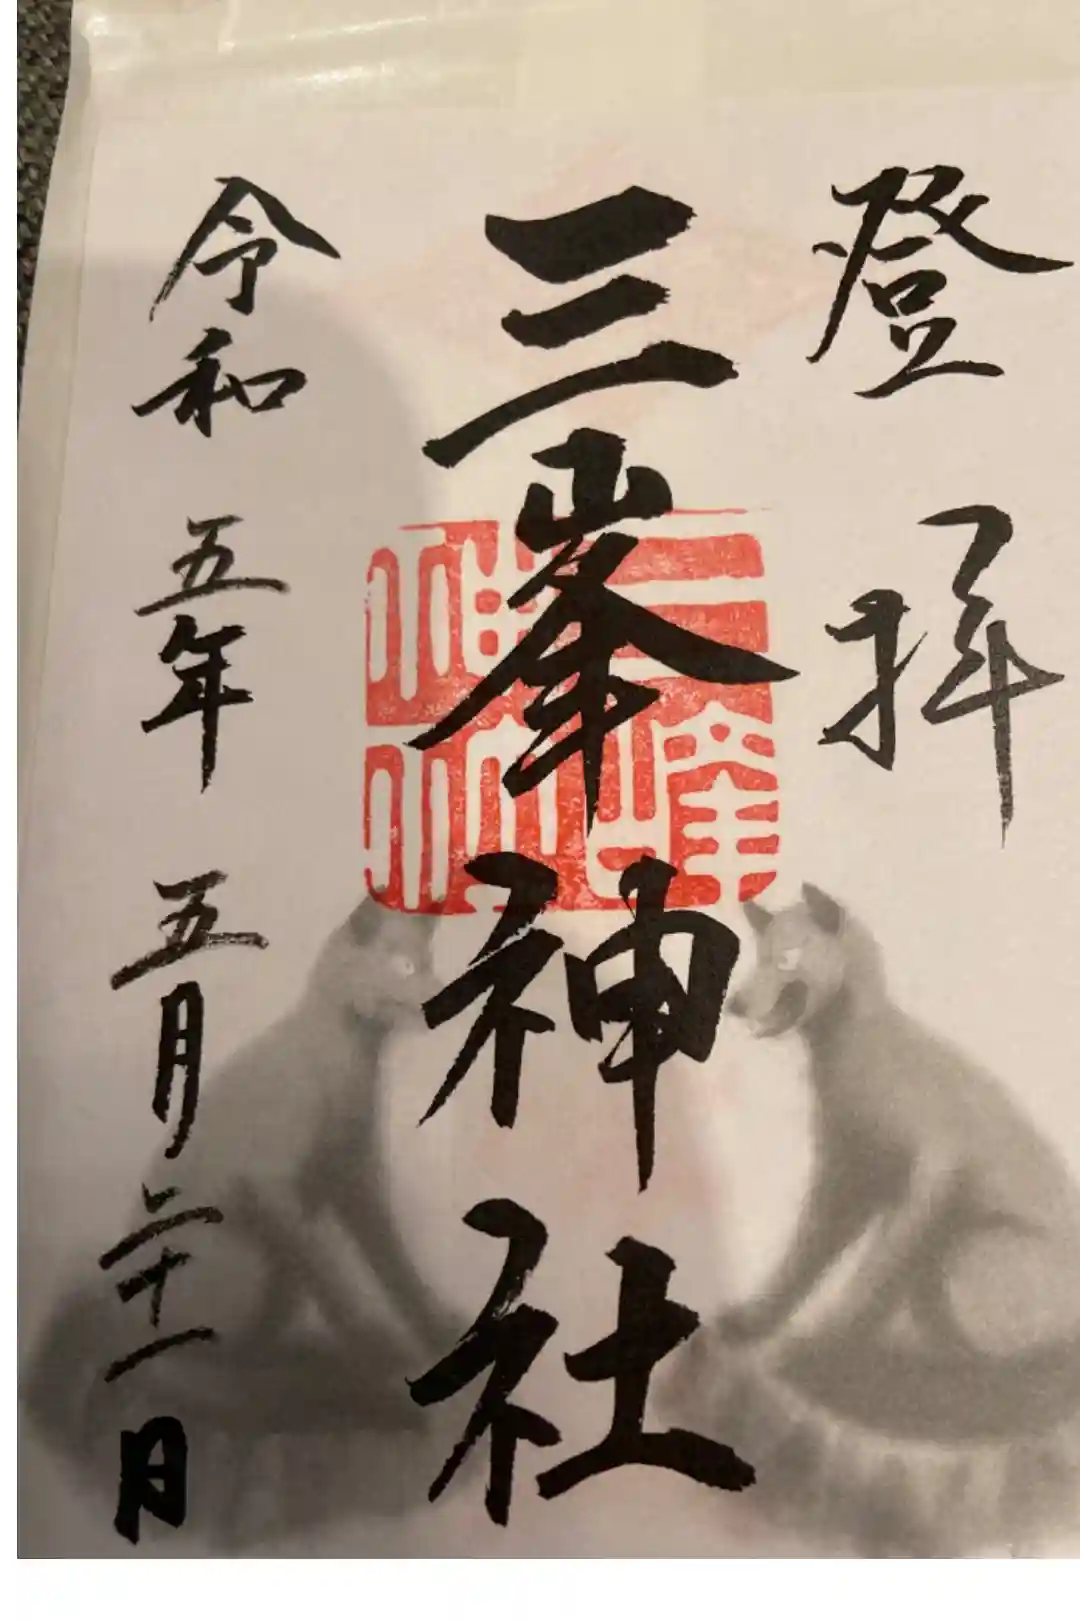 登拝
三峯神社
令和五年五月二十一日